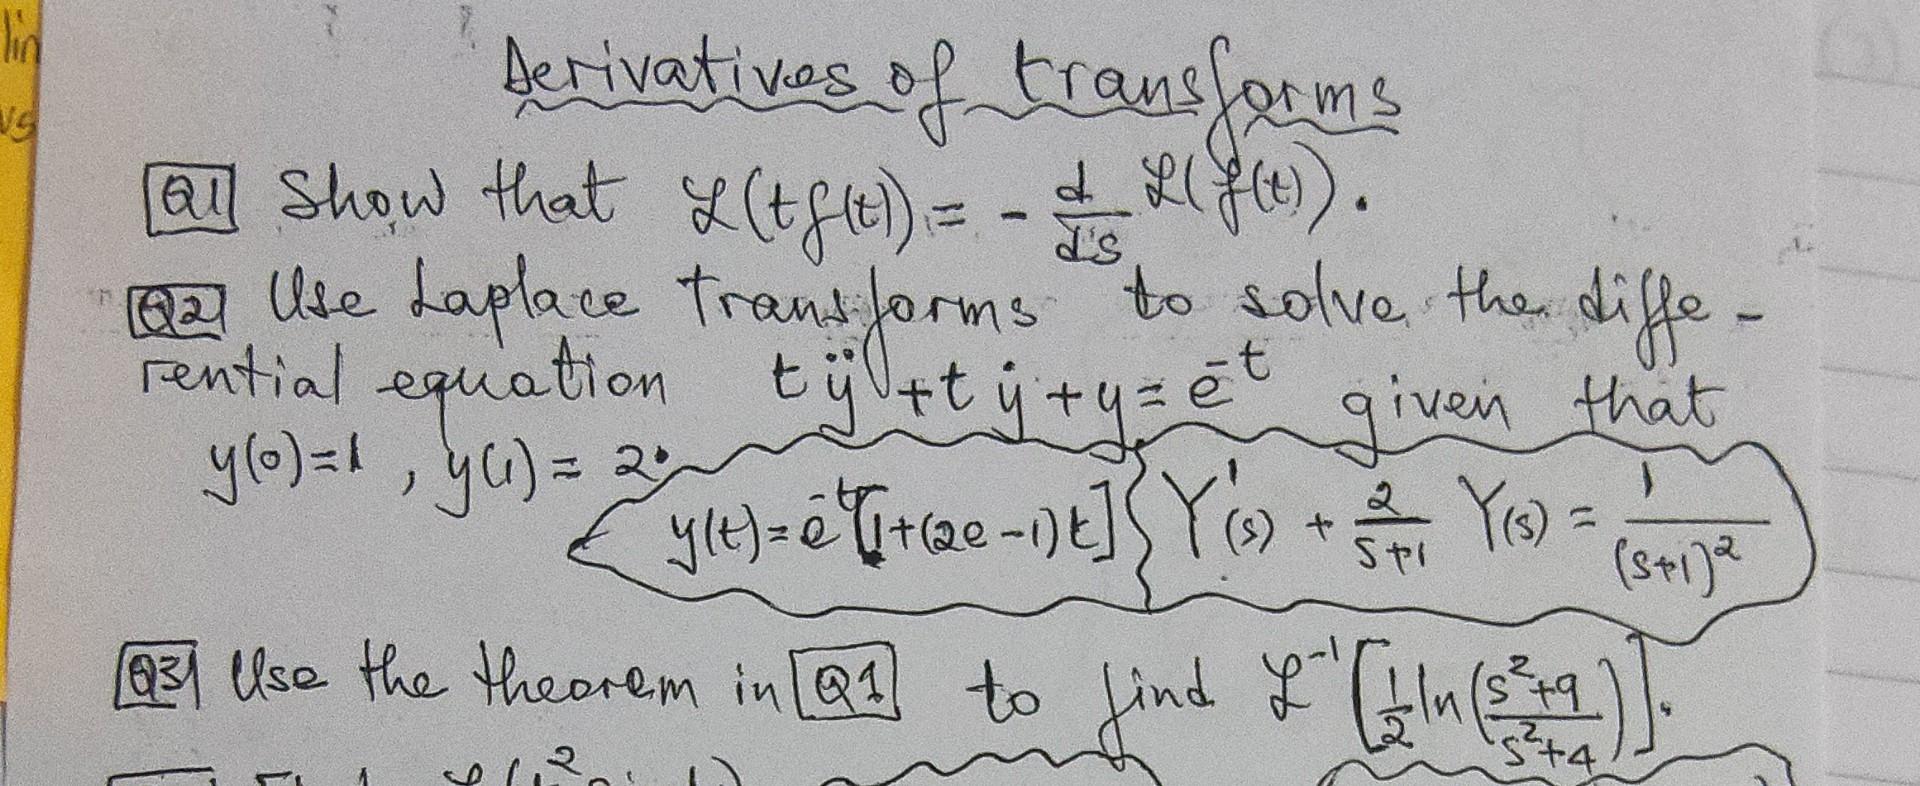 lin
vs
Derivatives of transforms
Q1 Show that ℒ(tf(t)) = - d/ds ℒ(f(t)).
Q2 Use Laplace Transforms to solve the diffe-
rential equation tÿ + tẏ + y = e^-t given that
y(0)=1, y(1) = 2.
y(t) = e^-t[1+(2e-1)t] Y'(s) + 2/(s+1) Y(s) = 1/(s+1)^2
Q3 Use the theorem in Q1 to find ℒ^-1[1/2 ln((s^2+9)/(s^2+4))].